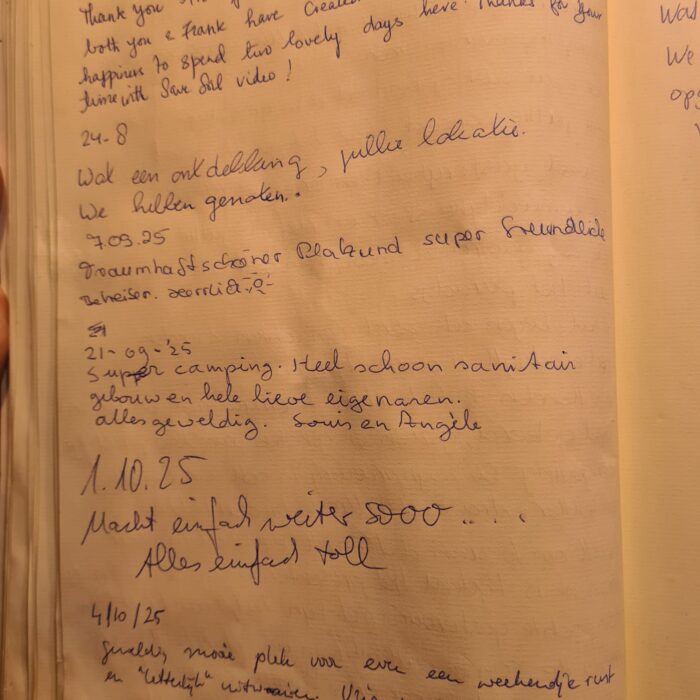 Thank you
both you & Frank have Created
happiness to spend two lovely days here. Thanks for your
time with Save Soil video!
24-8
Wat een ontdekking, jullie lokatie.
We hebben genoten.
7.09.25
Traumhaft schöner Platz und super freundliche
Betreiber. Herrlich
21-09-'25
Super camping. Heel schoon sanitair
gebouw en hele lieve eigenaren.
alles geweldig. Louis en Angèle
1.10.25
Macht einfach weiter sooo....
Alles einfach toll
4/10/25
Geweldig mooie plek voor even een weekendje rust
en "letterlijk" uitwaaien.
Was
We